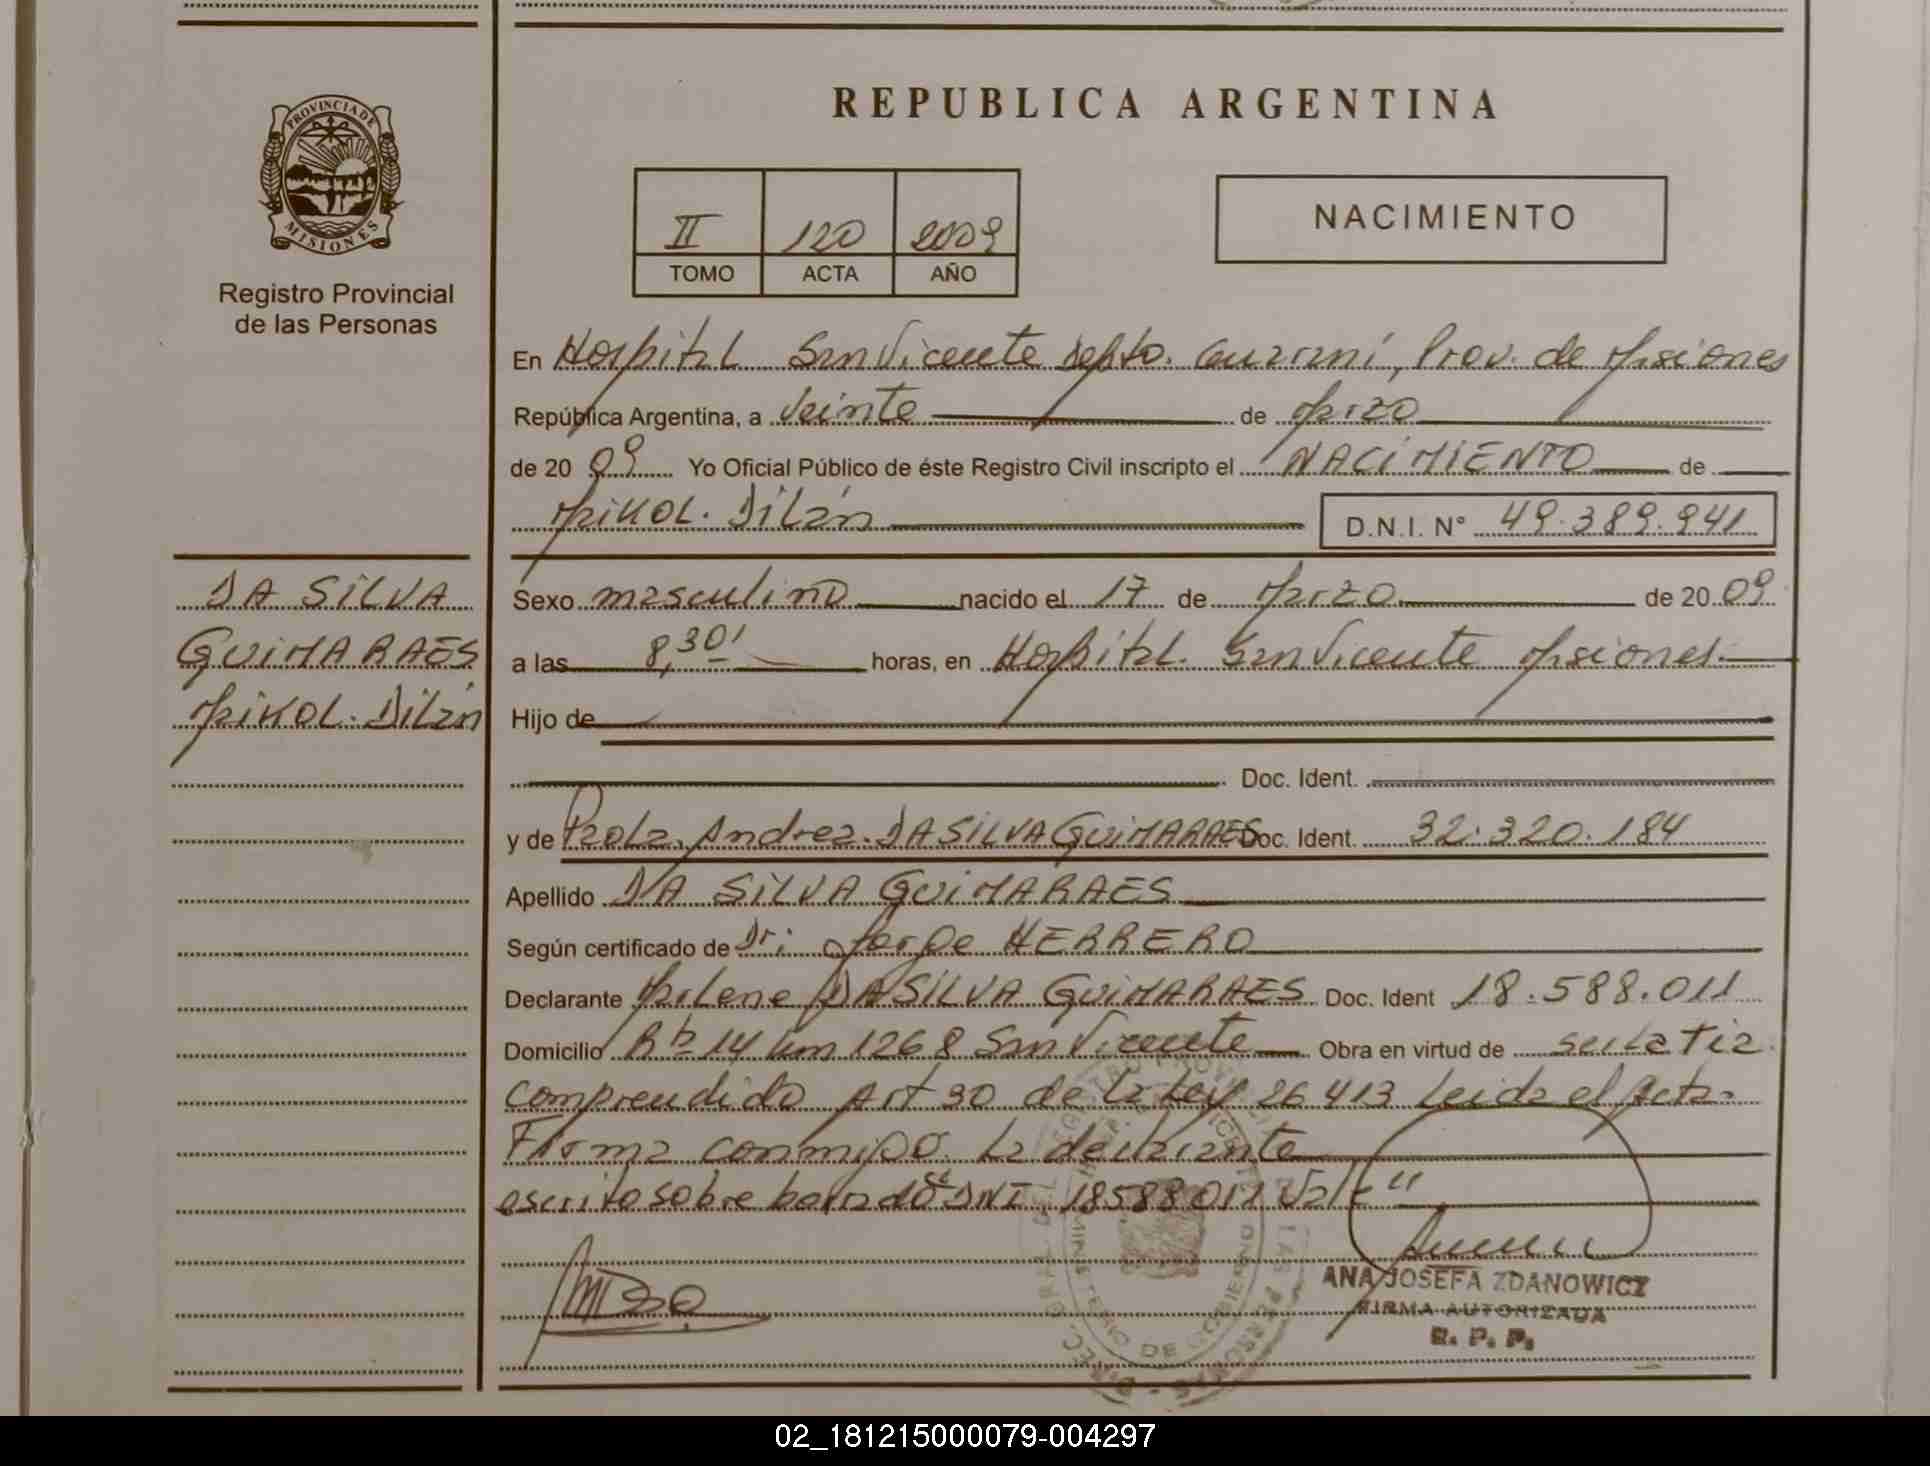 REPUBLICA ARGENTINA
PROVINCIA DE MISIONES
Registro Provincial
de las Personas
II 120 2009
TOMO ACTA AÑO
NACIMIENTO
En Hospital San Vicente Depto. Guaraní, Prov. de Misiones
República Argentina, a Veinte de Marzo
de 2009 Yo Oficial Público de éste Registro Civil inscripto el NACIMIENTO de
Maikol. Dilán D.N.I. N° 49.389.941
DA SILVA
GUIMARAES
Maikol. Dilán
Sexo masculino nacido el 17 de Marzo de 2009
a las 8,30' horas, en Hospital. San Vicente Misiones.
Hijo de
Doc. Ident.
y de Paola. Andrea. DA SILVA GUIMARAES Doc. Ident. 32.320.184
Apellido DA SILVA GUIMARAES
Según certificado de Dr: Jorge HERRERO
Declarante Marlene DA SILVA GUIMARAES Doc. Ident 18.588.011
Domicilio Rta 14 km 1268 San Vicente Obra en virtud de ser la tia
comprendido Art 30 de la Ley 26413 Leida el Acta.
Firma conmigo la declarante
escrito sobre borrado "DNI 18588011 Vale"
ANA JOSEFA ZDANOWICZ
FIRMA AUTORIZADA
R. P. P.
MINISTERIO DE GOBIERNO
02_181215000079-004297